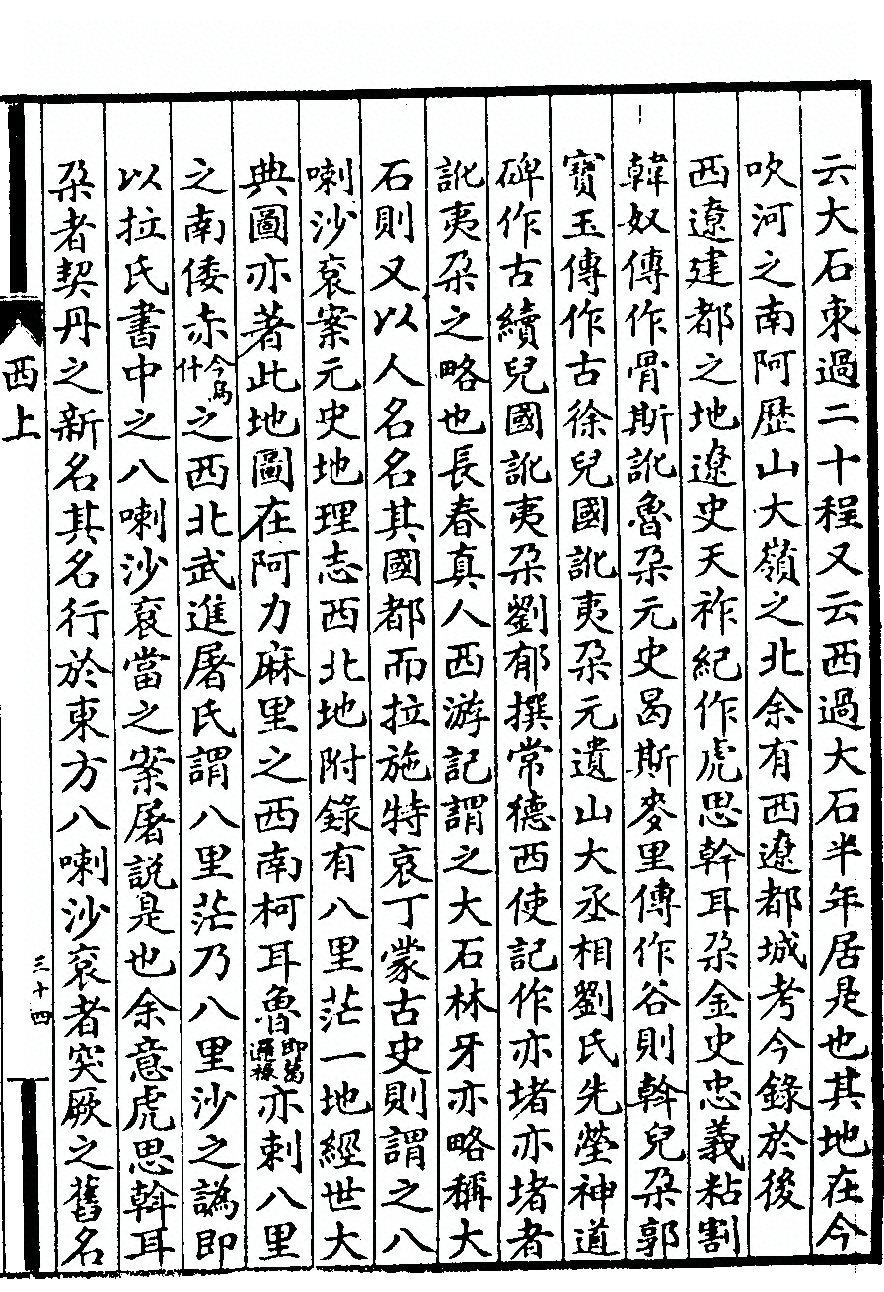 云大石東過二十程又云西過大石半年居是也其地在今
吹河之南阿歷山大嶺之北余有西遼都城考今錄於後
西遼建都之地遼史天祚紀作虎思斡耳朶金史忠義粘割
韓奴傳作骨斯訛魯朶元史曷斯麥里傳作谷則斡兒朶郭
寶玉傳作古徐兒國訛夷朶元遺山大丞相劉氏先塋神道
碑作古續兒國訛夷朶劉郁撰常德西使記作亦堵亦堵者
訛夷朶之略也長春真人西游記謂之大石林牙亦略稱大
石則又以人名名其國都而拉施特哀丁蒙古史則謂之八
喇沙袞案元史地理志西北地附錄有八里茫一地經世大
典圖亦著此地圖在阿力麻里之西南柯耳魯即葛邏祿亦剌八里
之南倭赤今烏什之西北武進屠氏謂八里茫乃八里沙之譌即
以拉氏書中之八喇沙袞當之案屠說是也余意虎思斡耳
朶者契丹之新名其名行於東方八喇沙袞者突厥之舊名
西上
三十四